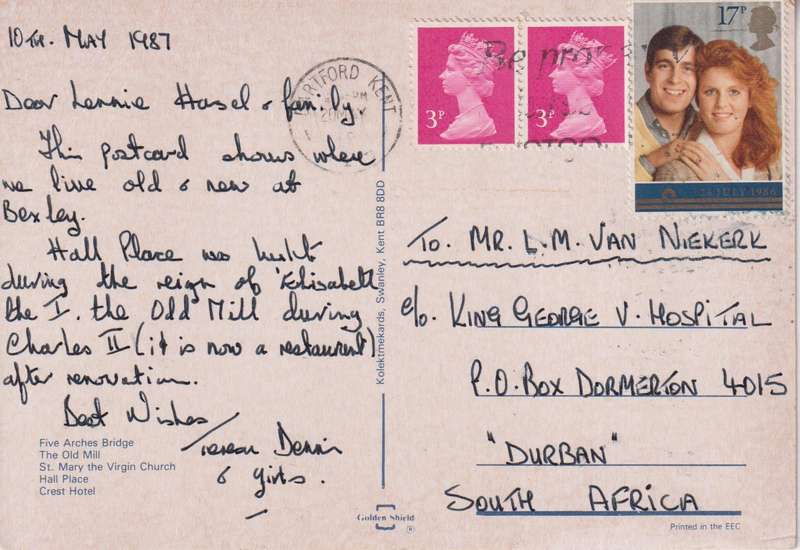 10TH. MAY 1987
Dear Lennie Hazel & family.
This postcard shows where
we live old & new at
Bexley.
Hall Place was built
during the reign of Elisabeth
the I. the Old Mill during
Charles II (it is now a restaurant)
after renovation.
Best Wishes
Dennis
& girls.
Five Arches Bridge
The Old Mill
St. Mary the Virgin Church
Hall Place
Crest Hotel
Kolektmekards, Swanley, Kent BR8 8DD
Golden Shield
®
DARTFORD KENT
3P
3P
17P
23 JULY 1986
Be
TO. MR. L.M. VAN NIEKERK
c/o. KING GEORGE V. HOSPITAL
P.O. BOX DORMERTON 4015
"DURBAN"
SOUTH AFRICA
Printed in the EEC